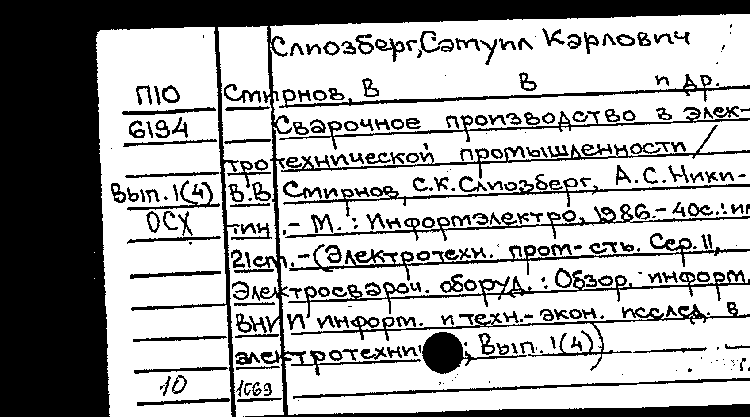 Слиозберг, Самуил Карлович
П10 Смирнов, В В и др.
6194 Сварочное производство в элек-
тротехнической промышленности /
Вып. 1(4) В.В. Смирнов, С.К. Слиозберг, А.С. Ники-
ОСХ тин. - М. : Информэлектро, 1986. - 40с.: ил
21см. - (Электротехн. пром-сть. Сер. 11,
Электросвароч. оборуд. : Обзор. информ.
ВНИИ информ. и техн.-экон. исслед. в
электротехни ; Вып. 1(4))
10 1069